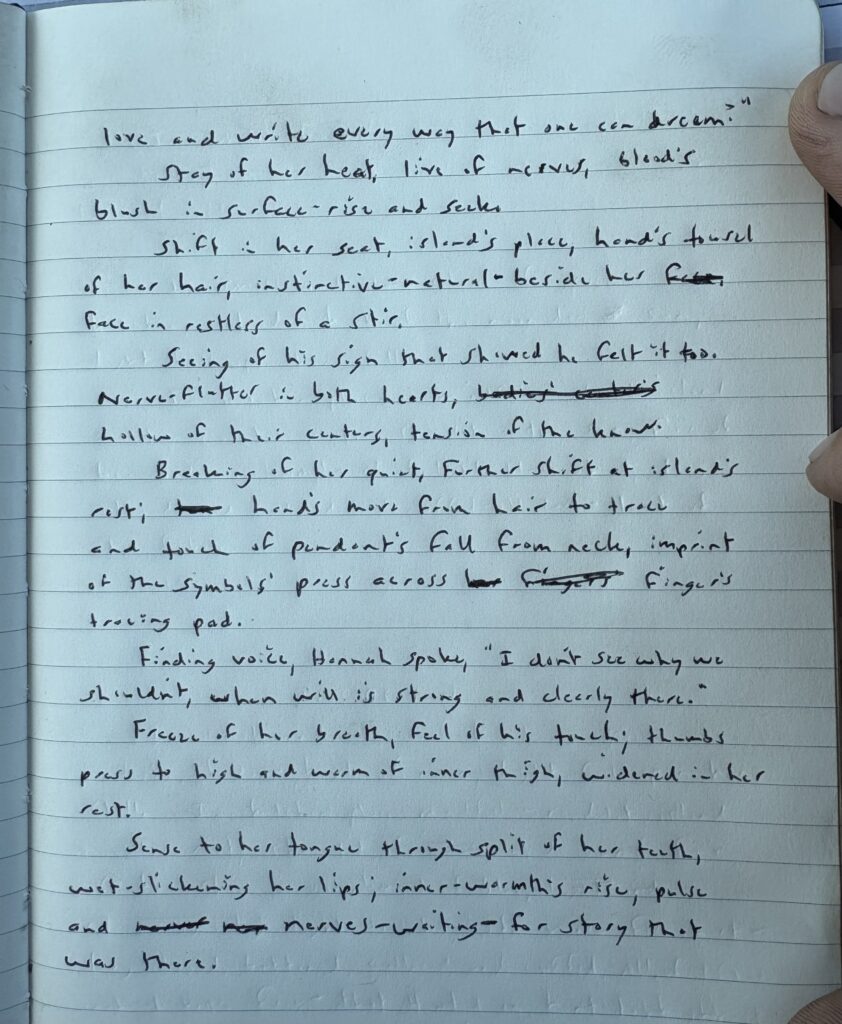 love and write every way that one can dream?"
Stay of her heat, live of nerves, blood's
blush in surface-rise and seek.
Shift in her seat, island's place, hand's tousel
of her hair, instinctive-natural-beside her
face in restless of a stir.
Seeing of his sign that showed he felt it too.
Nerve-flutter in both hearts,
hollow of their centers, tension of the know.
Breaking of her quiet, further shift at island's
rest; hand's move from hair to trace
and touch of pendant's fall from neck, imprint
of the symbols' press across finger's
tracing pad.
Finding voice, Hannah spoke, "I don't see why we
shouldn't, when will is strong and clearly there."
Freeze of her breath, feel of his touch; thumbs
press to high and warm of inner thigh, widened in her
rest.
Sense to her tongue through split of her teeth,
wet-slickening her lips; inner-warmth's rise, pulse
and nerves-waiting-for story that
was there.